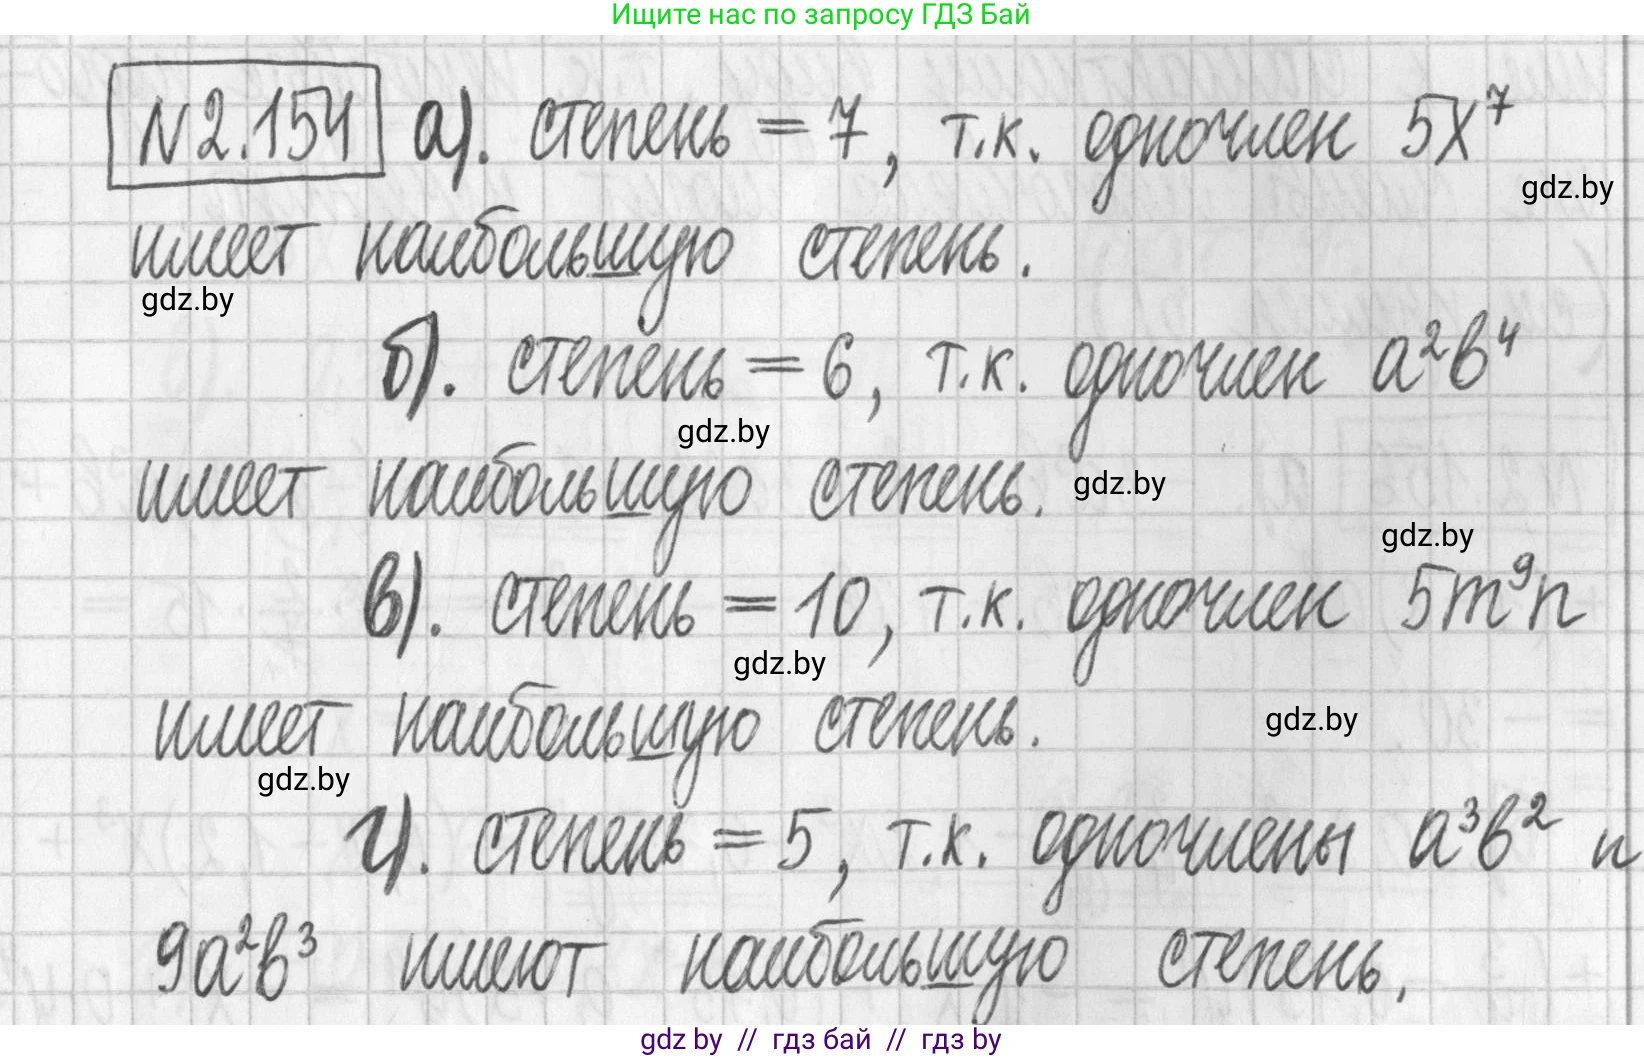 Ищите нас по запросу ГДЗ Бай
N2.154 а). степень = 7, т.к. одночлен 5x⁷
gdz.by
имеет наибольшую степень.
gdz.by
б). степень = 6, т.к. одночлен a²b⁴
gdz.by
имеет наибольшую степень.
gdz.by
gdz.by
в). степень = 10, т.к. одночлен 5m⁹n
gdz.by
имеет наибольшую степень.
gdz.by
gdz.by
г). степень = 5, т.к. одночлены a³b² и
9a²b³ имеют наибольшую степень.
gdz.by // гдз бай // гдз by